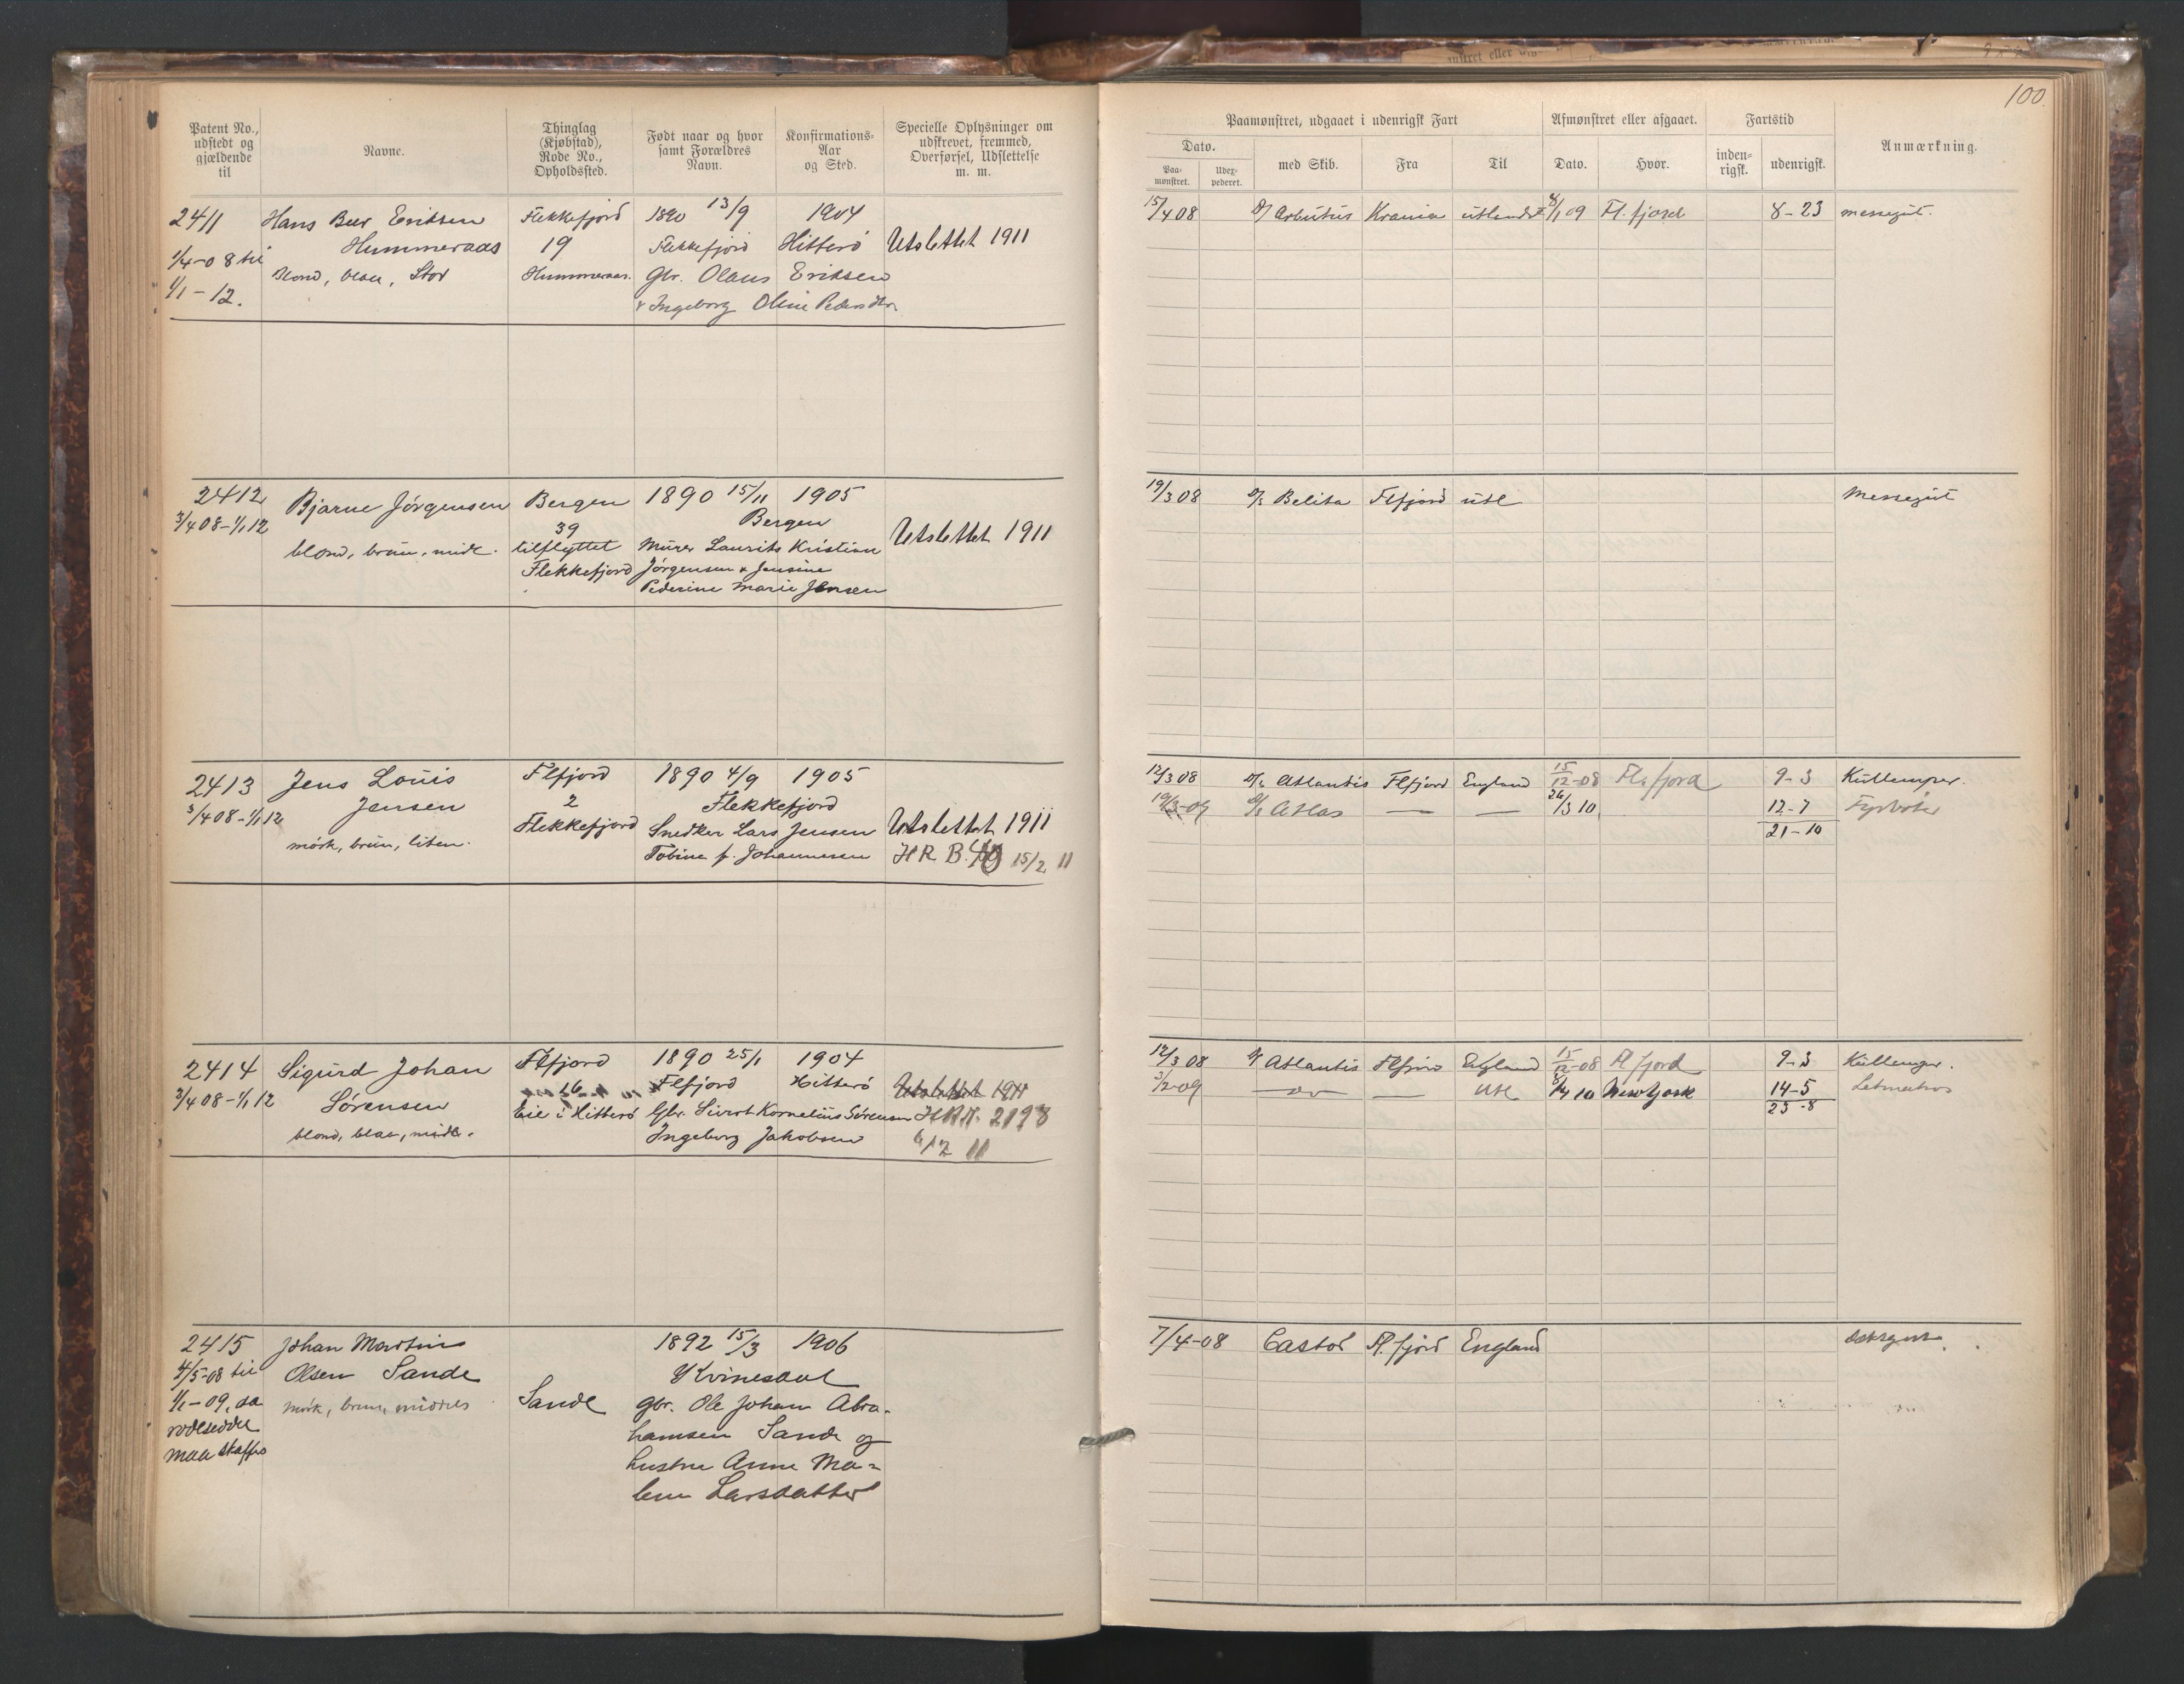 100.
Patent No., udstedt og gjældende til
Navne.
Thinglag (Kjøbstad), Rode No., Opholdssted.
Født naar og hvor samt Forældres Navn.
Konfirmations-Aar og Sted.
Specielle Oplysninger om udskrevet, fremmed, Overførsel, Udslettelse m. m.
Paamønstret, udgaaet i udenrigsk Fart
Afmønstret eller afgaaet.
Fartstid
Anmærkning.
Dato.
Paa-mønstret.
Udex-pederet.
med Skib.
Fra
Til
Dato.
Hvor.
inden-rigsk.
udenrigsk.
2411 Hans Beer Eriksen Flekkefjord 1890 13/9 1904
Hummeraas 19 Flekkefjord Hitterø Utslettet 1911
1/4-08 til blond, blaa, Stor Hummeraas. Gbr. Olaus Eriksen
1/1-12. & Ingeborg Oline Pedersdtr
15/4 08 D/ Arbutus Krania utlandet 8/1 09 Fl. fjord 8-23 messegut.
2412 Bjarne Jørgensen Bergen 1890 15/11 1905
3/4 08-1/1 12 39 Bergen
blond, brun, midl. tilflyttet Murer Laurits Kristian Utslettet 1911
Flekkefjord Jørgensen & Jensine
Pederine Marie Jensen
19/3 08 D/s Belita Flfjord utl Messegut
2413 Jens Louis Flfjord 1890 4/9 1905
3/4 08-1/1 12 Jensen 2 Flekkefjord
mörk, brun, liten. Flekkefjord Snedker Lars Jensen Utslettet 1911
Tobine f. Johannesen HR B. 15/2 11
12/3 08 D/s Atlantis Flfjord England 15/12-08 Fl. fjord 9-3 Kullemper.
19/3-09 D/s Atlas — — 26/3 10 12-7 Fyrbøter
21-10
2414 Sigurd Johan Flfjord 1890 25/1 1904
3/4 08-1/1 12 Sørensen 16 Flfjord Hitterø Utslettet 1911
Eie i Hitterø Gbr. Sivert Kornelius Sørensen 2198
blond, blaa, midl. Ingeborg Jakobsen 11
12/3 08 D/ Atlantis Flfjord England 15/12-08 Fl fjord 9-3 Kullemper.
3/2-09 —do— — Utl 10 New York 14-5 Letmatros
23-8
2415 Johan Martin 1892 15/3 1906
4/5-08 til Olsen Sande Kvinesdal
1/1-09, da mørk, brun, middels Sande gbr. Ole Johan Abra-
rodeseddel hamsen Sande og
maa skaffes hustru Anne Ma-
lene Larsdatter
7/4-08 Castor Fl. fjord England dæksgut